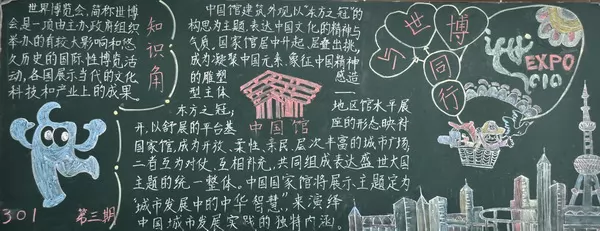 世界博览会,简称世博
会是一项由主办政府组织
举办的有较大影响和悠
久历史的国际性博览活
动,各国展示当代的文化
科技和产业上的成果。
知识角
301 第三期
中国馆建筑外观,以“东方之冠”的
构思为主题,表达中国文化的精神与
气质。国家馆居中升起、层叠出挑,
成为凝聚中国元素,象征中国精神
的雕塑感造
型主体——
东方之冠;地区馆水平展
开,以舒展的平台基座的形态映衬
国家馆,成为开放、柔性、亲民、层次丰富的城市广场;
二者互为对仗、互相补充,共同组成表达盛世大国
主题的统一整体。中国国家馆将展示主题定为
“城市发展中的中华智慧”,来演绎
中国城市发展实践的独特内涵。
中国馆
与世博
同行
EXPO
010